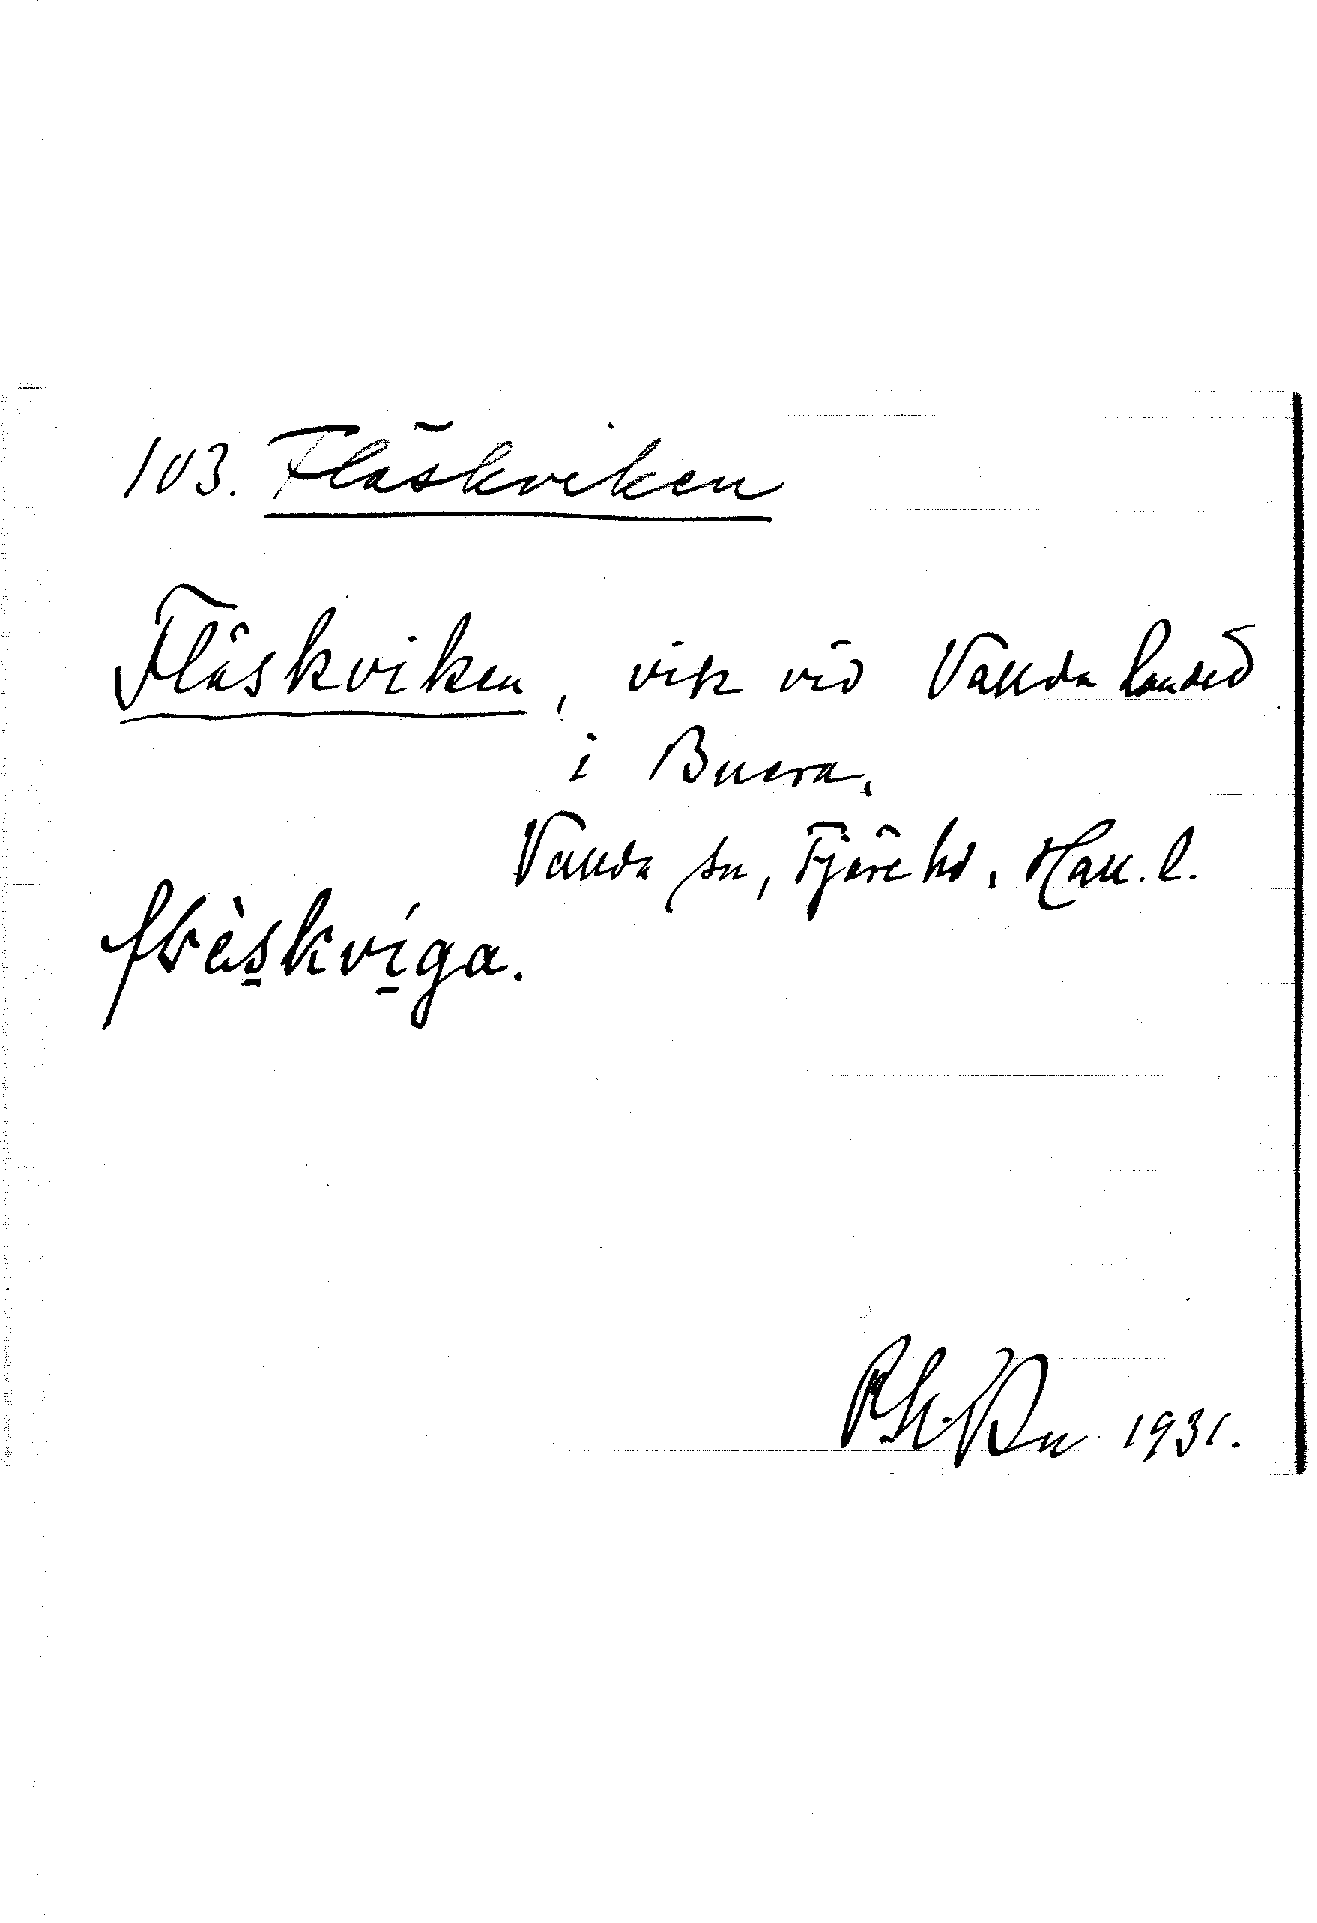 103. Fläskviken
Fläskviken, vik vid Vallda Sandö
i Buera.
Vallda sn, Fjäre hd, Hall. l.
flæ̀skviga.
1931.